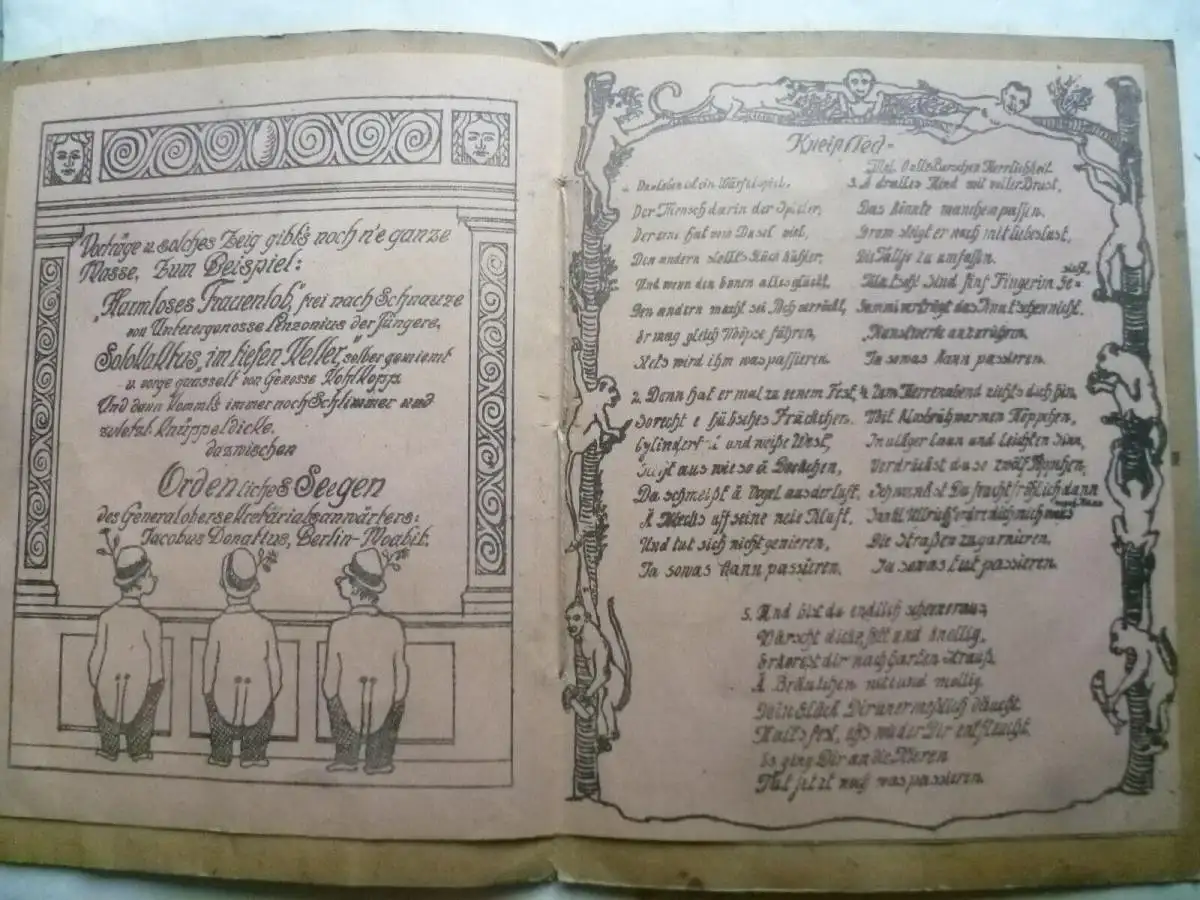 Vorträge u. solches Zeig gibt's noch n'e ganze
Masse, Zum Beispiel:
„Harmloses Frauenlob," frei nach Schnauze
von Unterergenosse Linzonius der Jüngere,
Solokaktus „im tiefen Keller," selber gemiemt
u. vorge quasselt von Genosse Kohlkopp.
Und dann kommt's immer noch Schlimmer und
zuletzt knüppeldicke.
dazwischen
Ordenliches Seegen
des Generalobersekretäriatsanwärters:
Jacobus Donatius, Berlin-Moabit.
Kneiplied
Mel. O alte Burschen Herrlichkeit
1. Das Leben ist ein Würfelspiel,
Der Mensch darin der Spieler,
Der eine hat vom Dusel viel,
Den andern
Und wenn den Eenen alles glückt,
Den andern macht sei Pech verrückt,
Er mag gleich Möpse führen,
Stets wird ihm was passieren.
2. Dann hat er mal zu senem Fest,
So recht e hübsches Fräckchen
Cylinder und weiße West,
aus wie so ä
Da schmeißt ä Vogel aus der Luft,
Ä Klecks uff seine neie Kluft,
Und tut sich nicht genieren,
Ja sowas kann passieren.
3. Ä dralles Kind mit voller Brust,
Das könnte manchem passen.
Drum steigt er nach mit Liebeslust,
Die Taille zu umfassen.
sind fünf Finger im Ge-
sicht,
verträgt das Am't schon nicht,
Kunstwerke anzurühren,
Ja sowas kann passieren.
4. Zum Herrenabend zieht's dich hin,
Mit Köppchen,
In ulk'ger Laun und leichten Sinn,
Verdrückst du so zwölf Töppchen,
Schwankst Du fröhlich dann
Die Straßen zu garnieren,
Ja sowas tut passieren.
5. Und bist du endlich
Wärscht dicke, fett und knollig,
Erkorest dir nach
Ä Bräutchen nett und mollig
Dein Glück Dir unermeßlich däucht
Halts fest, eh's wieder Dir entfleucht
Es ging Dir an die Nieren
Tät jetzt noch was passieren.